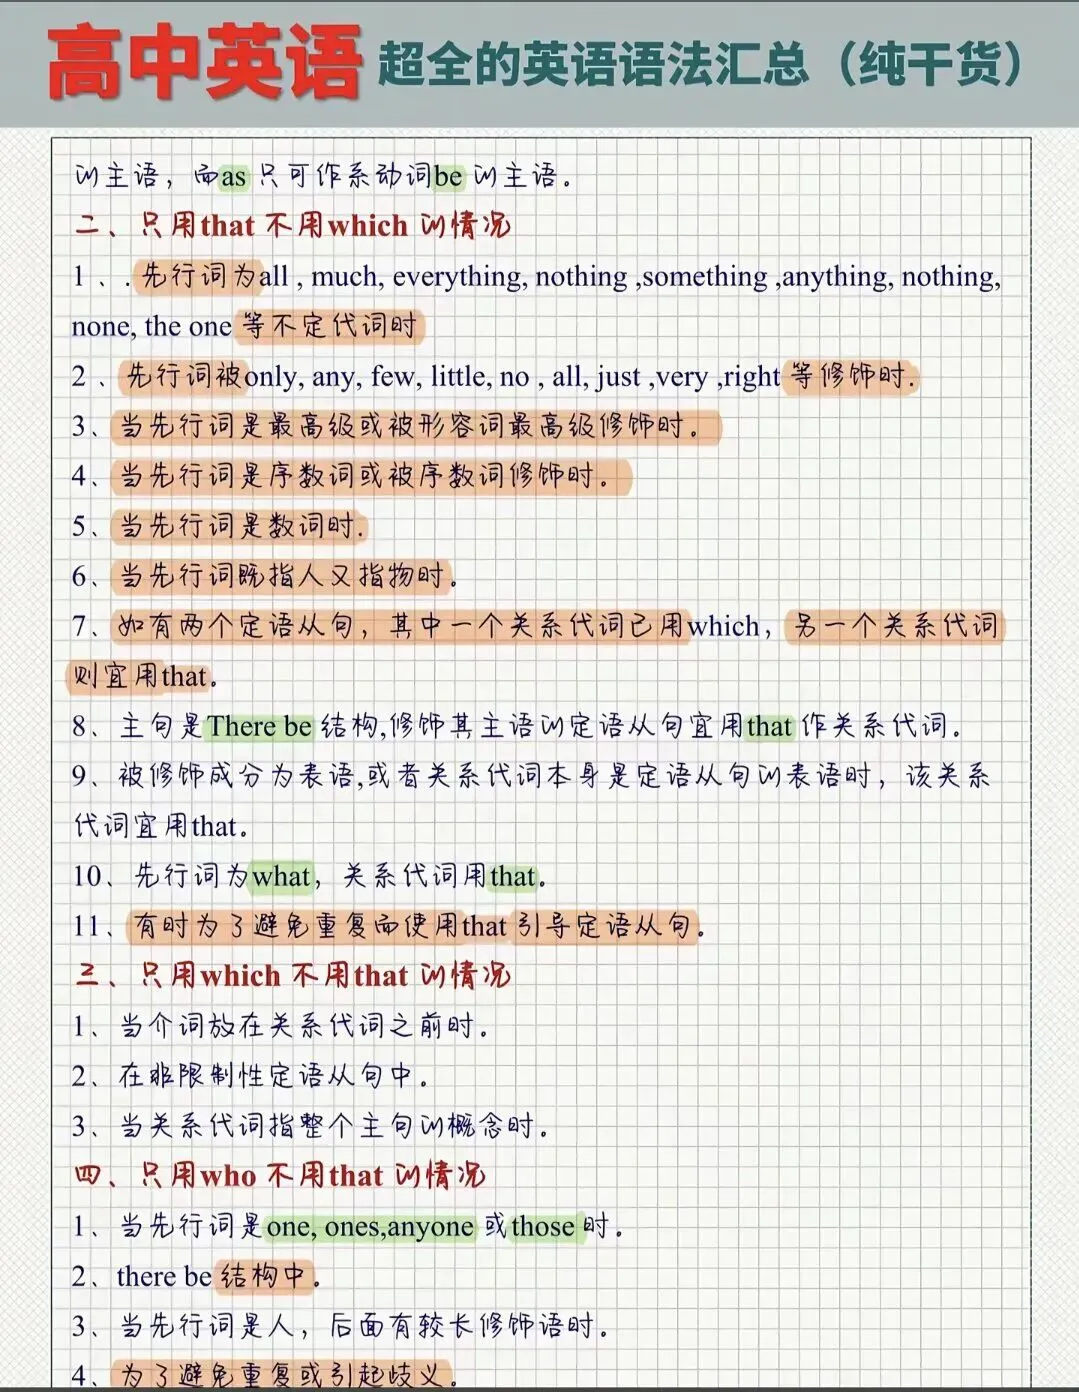 高中英语 超全的英语语法汇总（纯干货）
的主语，而as 只可作系动词be 的主语。
二、只用that 不用which 的情况
1 、. 先行词为all , much, everything, nothing ,something ,anything, nothing,
none, the one 等不定代词时
2 、先行词被only, any, few, little, no , all, just ,very ,right 等修饰时.
3、当先行词是最高级或被形容词最高级修饰时。
4、当先行词是序数词或被序数词修饰时。
5、当先行词是数词时.
6、当先行词既指人又指物时。
7、如有两个定语从句，其中一个关系代词已用which，另一个关系代词
则宜用that。
8、主句是There be 结构,修饰其主语的定语从句宜用that 作关系代词。
9、被修饰成分为表语,或者关系代词本身是定语从句的表语时，该关系
代词宜用that。
10、先行词为what，关系代词用that。
11、有时为了避免重复而使用that 引导定语从句。
三、只用which 不用that 的情况
1、当介词放在关系代词之前时。
2、在非限制性定语从句中。
3、当关系代词指整个主句的概念时。
四、只用who 不用that 的情况
1、当先行词是one, ones,anyone 或those 时。
2、there be 结构中。
3、当先行词是人，后面有较长修饰语时。
4、为了避免重复或引起歧义。